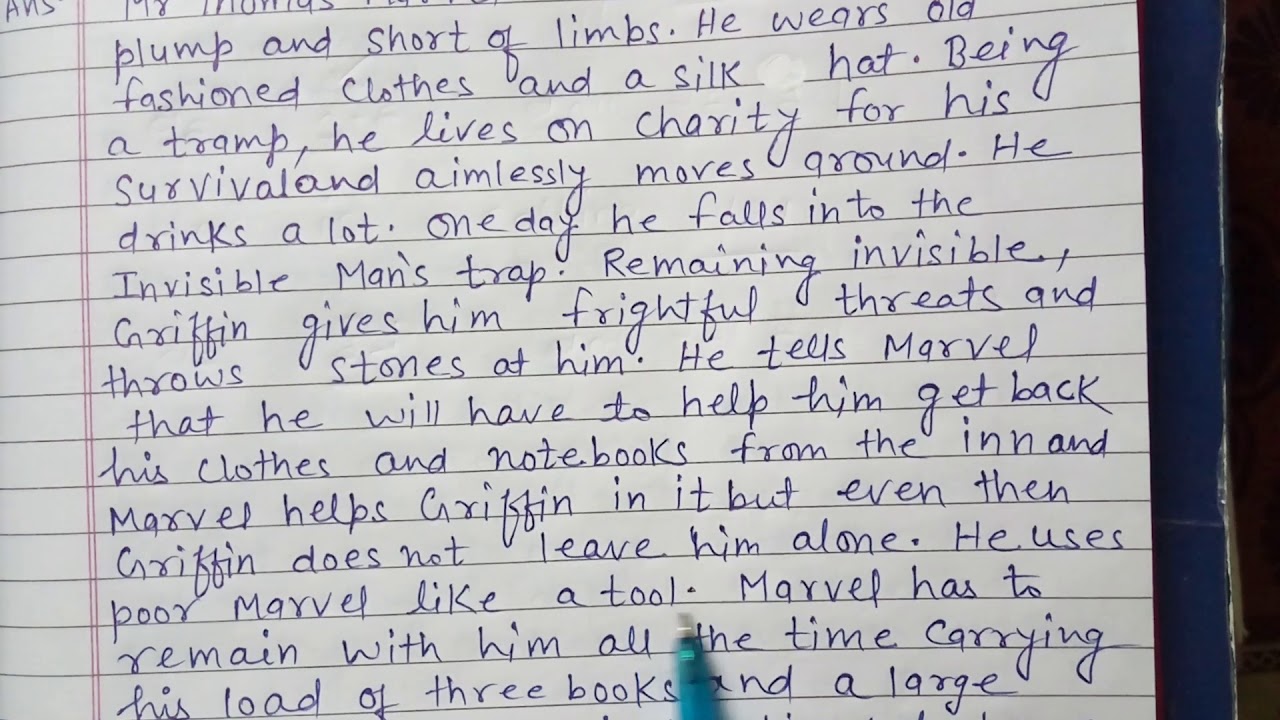 Ans Mr Thomas
plump and short of limbs. He wears old
fashioned clothes and a silk hat. Being
a tramp, he lives on charity for his
survivaland aimlessly moves ground. He
drinks a lot. One day he falls into the
Invisible Man's trap. Remaining invisible,
Griffin gives him frightful threats and
throws stones at him. He tells Marvel
that he will have to help him get back
his clothes and notebooks from the inn and
Marvel helps Griffin in it but even then
Griffin does not leave him alone. He uses
poor Marvel like a tool. Marvel has to
remain with him all the time carrying
his load of three books and a large